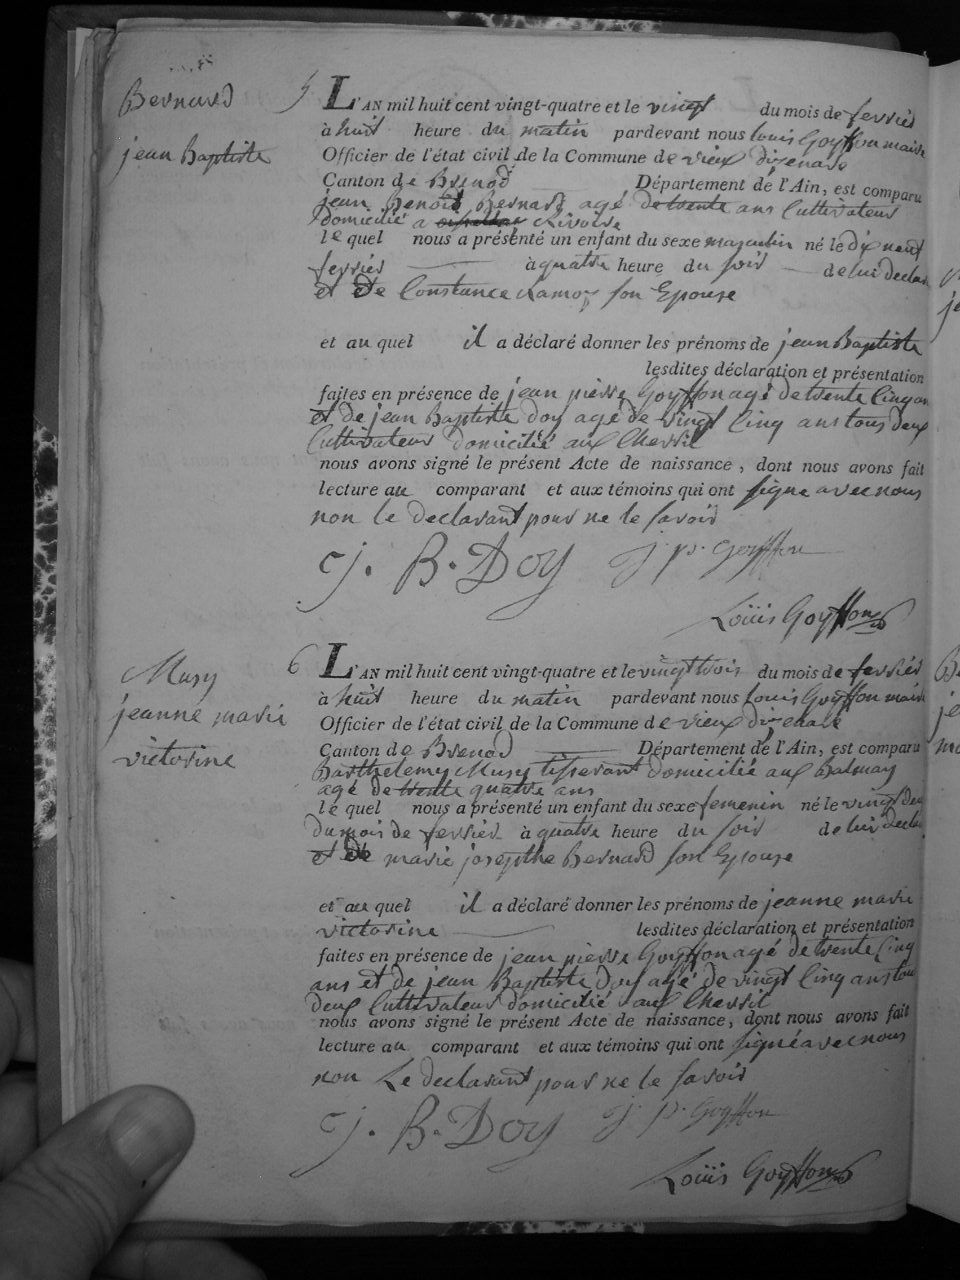 Bernard
jean Baptiste
5 L'AN mil huit cent vingt-quatre et le vingt du mois de fevrier
à huit heure du matin pardevant nous Louis Goyffon maire
Officier de l'état civil de la Commune de vieux d'izenave
Canton de Brenod Département de l'Ain, est comparu
jean Benoit Bernard agé de trente ans Cultivateur
domicilié a Rivoire
le quel nous a présenté un enfant du sexe masculin né le dix neuf
fevrier à quatre heure du soir de lui declar
et de Constance Ramoz son Epouse
et au quel il a déclaré donner les prénoms de jean Baptiste
lesdites déclaration et présentation
faites en présence de jean pierre Goyffon agé de trente Cinq an
et de jean Baptiste Doy agé de vingt Cinq ans tous deux
Cultivateur domicilié aux Chevril
nous avons signé le présent Acte de naissance, dont nous avons fait
lecture au comparant et aux témoins qui ont signe avec nous
non le declarant pour ne le savoir
J. B. Doy j. p. Goyffon
Loüis Goyffon
Musy
jeanne marie
victorine
6 L'AN mil huit cent vingt-quatre et le vingt trois du mois de fevrier
à huit heure du matin pardevant nous Louis Goyffon maire
Officier de l'état civil de la Commune de vieux d'izenave
Canton de Brenod Département de l'Ain, est comparu
Barthelemy Musy tisserant domicilié aux Balmay
agé de trente quatre ans
le quel nous a présenté un enfant du sexe femenin né le vingt deu
du mois de fevrier à quatre heure du soir de lui declar
et de marie josepthe Bernard son Epouse
et au quel il a déclaré donner les prénoms de jeanne marie
victorine lesdites déclaration et présentation
faites en présence de jean pierre Goyffon agé de trente Cinq
ans et de jean Baptiste Doy agé de vingt Cinq ans tous
deux Cultivateur domicilié aux Chevril
nous avons signé le présent Acte de naissance, dont nous avons fait
lecture au comparant et aux témoins qui ont signé avec nous
non Le declarant pour ne le savoir
J. B. Doy j. p. Goyffon
Loüis Goyffon